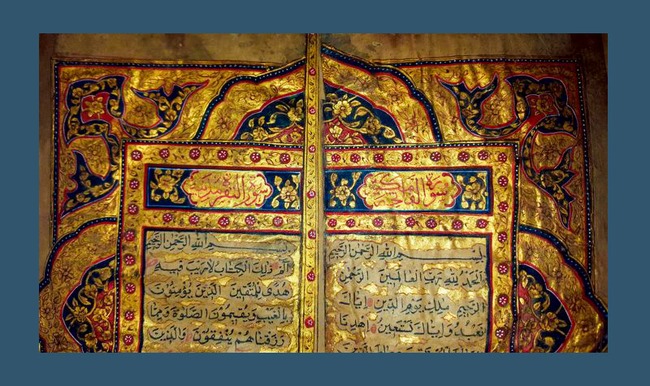 سورة الفاتحة
بسم الله الرحمن الرحيم
الحمد لله رب العالمين الرحمن
الرحيم مالك يوم الدين اياك
نعبد واياك نستعين اهدنا
سورة البقرة
بسم الله الرحمن الرحيم
الم ذلك الكتاب لا ريب فيه
هدى للمتقين الذين يؤمنون
بالغيب ويقيمون الصلوة ومما
رزقناهم ينفقون والذين